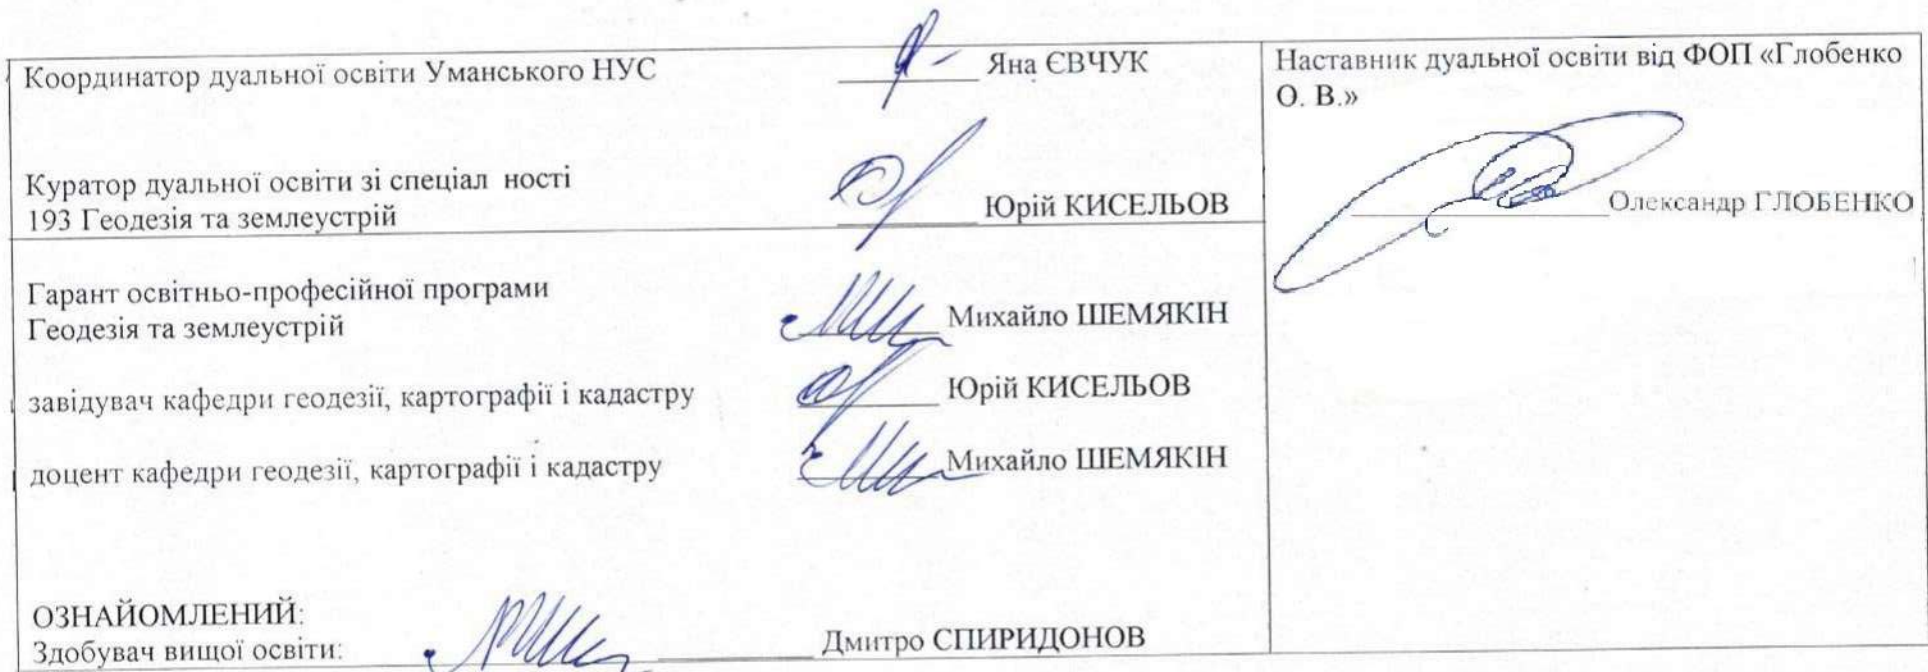 Координатор дуальної освіти Уманського НУС Яна ЄВЧУК
Куратор дуальної освіти зі спеціал ності
193 Геодезія та землеустрій Юрій КИСЕЛЬОВ
Гарант освітньо-професійної програми
Геодезія та землеустрій Михайло ШЕМЯКІН
завідувач кафедри геодезії, картографії і кадастру Юрій КИСЕЛЬОВ
доцент кафедри геодезії, картографії і кадастру Михайло ШЕМЯКІН
ОЗНАЙОМЛЕНИЙ:
Здобувач вищої освіти: Дмитро СПИРИДОНОВ
Наставник дуальної освіти від ФОП «Глобенко
О. В.»
Олександр ГЛОБЕНКО